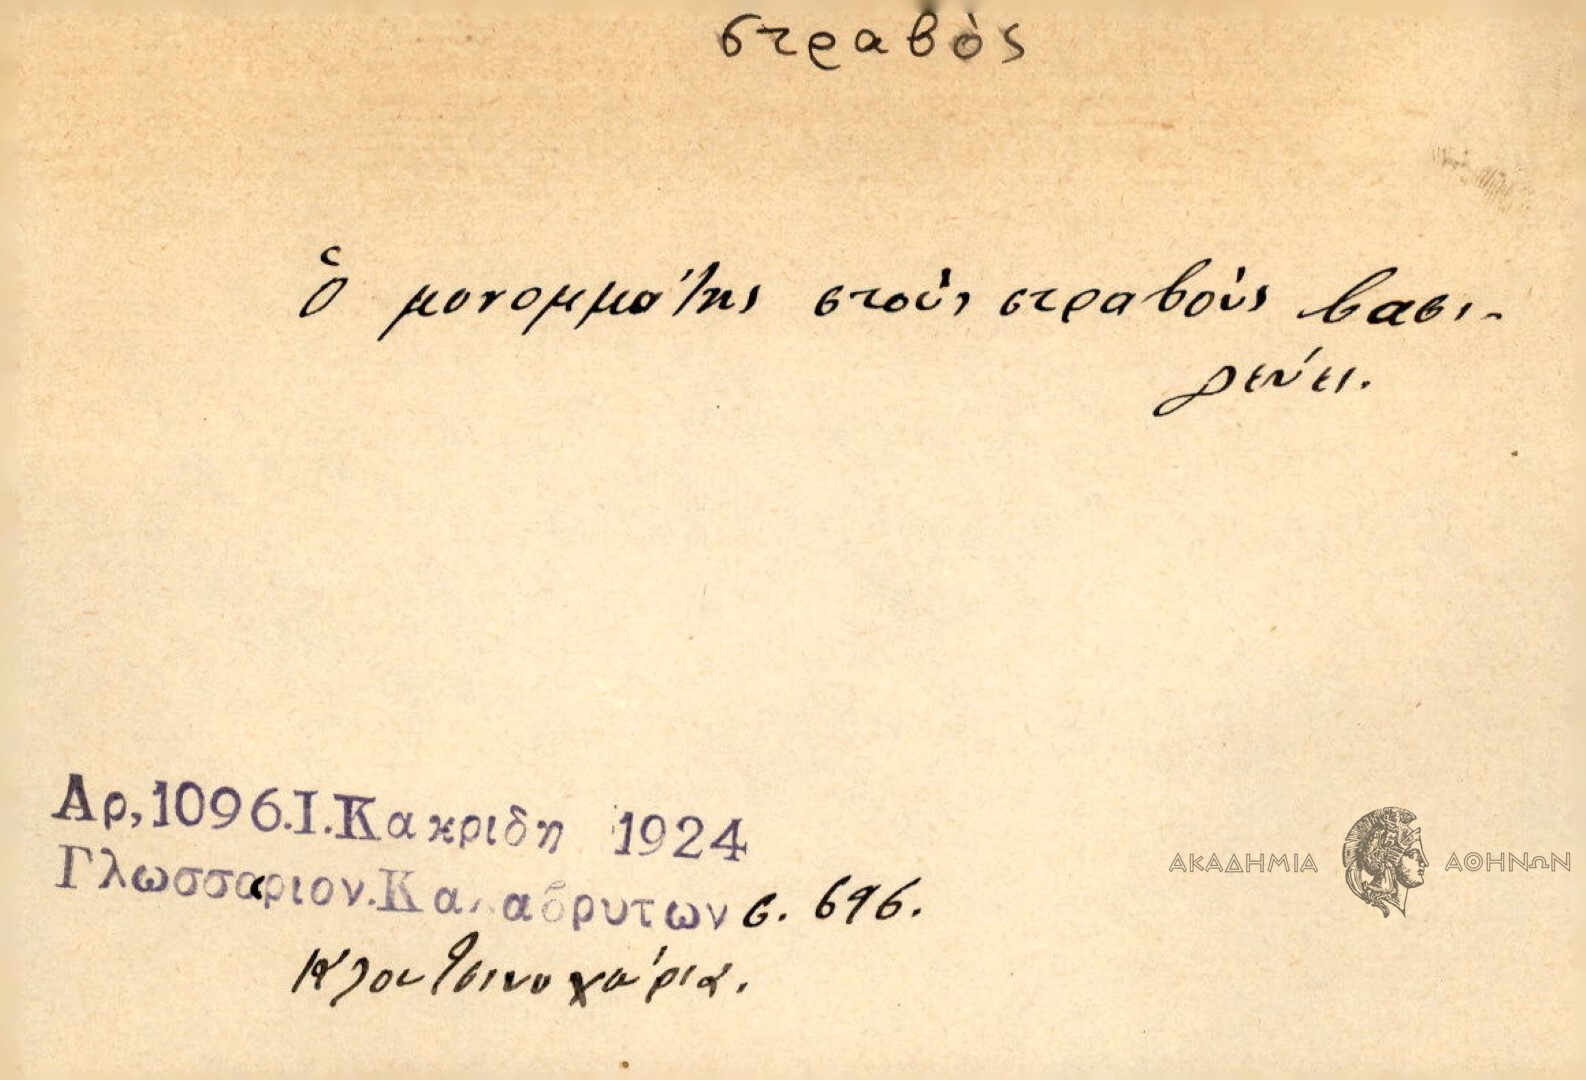 στραβὸς
Ὁ μονομμάτης στοὺς στραβοὺς βασι-
λεύει.
Αρ,1096.Ι.Κακριδη 1924
Γλωσσαριον.Καλαβρυτων σ. 696.
Κλουτσινοχώρια.
ΑΚΑΔΗΜΙΑ ΑΘΗΝΩΝ